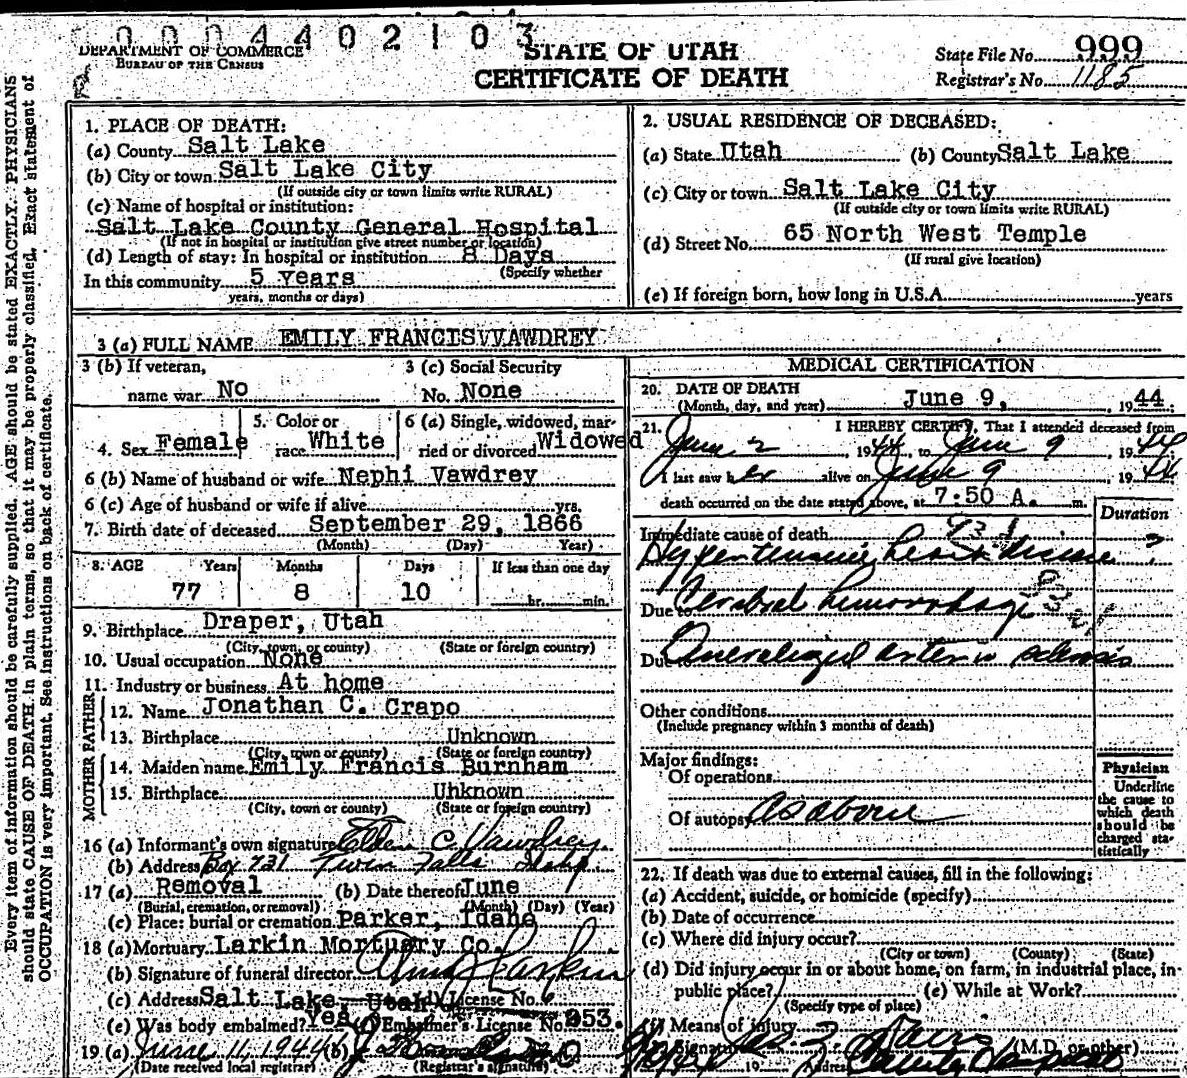 0004402103
DEPARTMENT OF COMMERCE
BUREAU OF THE CENSUS
STATE OF UTAH
CERTIFICATE OF DEATH
State File No. 999
Registrar's No. 1185
Every item of information should be carefully supplied. AGE should be stated EXACTLY. PHYSICIANS
should state CAUSE OF DEATH in plain terms, so that it may be properly classified. Exact statement of
OCCUPATION is very important. See instructions on back of certificate.
1. PLACE OF DEATH:
(a) County Salt Lake
(b) City or town Salt Lake City
(If outside city or town limits write RURAL)
(c) Name of hospital or institution:
Salt Lake County General Hospital
(If not in hospital or institution give street number or location)
(d) Length of stay: In hospital or institution 8 Days
(Specify whether
In this community 5 years
years, months or days)
2. USUAL RESIDENCE OF DECEASED:
(a) State Utah (b) County Salt Lake
(c) City or town Salt Lake City
(If outside city or town limits write RURAL)
(d) Street No. 65 North West Temple
(If rural give location)
(e) If foreign born, how long in U.S.A. years
3 (a) FULL NAME EMILY FRANCIS VAWDREY
3 (b) If veteran,
name war No
3 (c) Social Security
No. None
4. Sex Female
5. Color or
race White
6 (a) Single, widowed, mar-
ried or divorced Widowed
6 (b) Name of husband or wife Nephi Vawdrey
6 (c) Age of husband or wife if alive yrs.
7. Birth date of deceased September 29, 1866
(Month) (Day) Year)
8. AGE Years Months Days If less than one day
77 8 10 hr. min.
9. Birthplace Draper, Utah
(City, town, or county) (State or foreign country)
10. Usual occupation None
11. Industry or business At home
FATHER
12. Name Jonathan C. Crapo
13. Birthplace Unknown
(City, town or county) (State or foreign country)
MOTHER
14. Maiden name Emily Francis Burnham
15. Birthplace Uhknown
(City, town or county) (State or foreign country)
16 (a) Informant's own signature Elden C. Vawdrey
(b) Address Box 731 Twin Falls Idaho
17 (a) Removal (b) Date thereof June
(Burial, cremation, or removal) (Month) (Day) (Year)
(c) Place: burial or cremation Parker, Idaho
18 (a) Mortuary Larkin Mortuary Co.
(b) Signature of funeral director Larkin
(c) Address Salt Lake Utah (d) License No. 6
(e) Was body embalmed? Yes (f) Embalmer's License No. 853.
19 (a) June 11, 1944 (b)
(Date received local registrar) (Registrar's signature)
MEDICAL CERTIFICATION
20. DATE OF DEATH
(Month, day, and year) June 9, 1944
21. I HEREBY CERTIFY, That I attended deceased from
June 2 1944, to June 9, 1944
I last saw her alive on June 9 1944
death occurred on the date stated above, at 7:50 A. m.
Duration
Immediate cause of death
Hypertensive heart disease ?
Due to Cerebral hemorrhage
Due to Generalized arterio sclerosis
Other conditions
(Include pregnancy within 3 months of death)
Major findings:
Of operations
Of autopsy as above
Physician
Underline
the cause to
which death
should be
charged sta-
tistically
22. If death was due to external causes, fill in the following:
(a) Accident, suicide, or homicide (specify)
(b) Date of occurrence
(c) Where did injury occur?
(City or town) (County) (State)
(d) Did injury occur in or about home, on farm, in industrial place, in
public place? (e) While at Work?
(Specify type of place)
(f) Means of injury
Signature (M.D. or other)
19 Address County Hospital